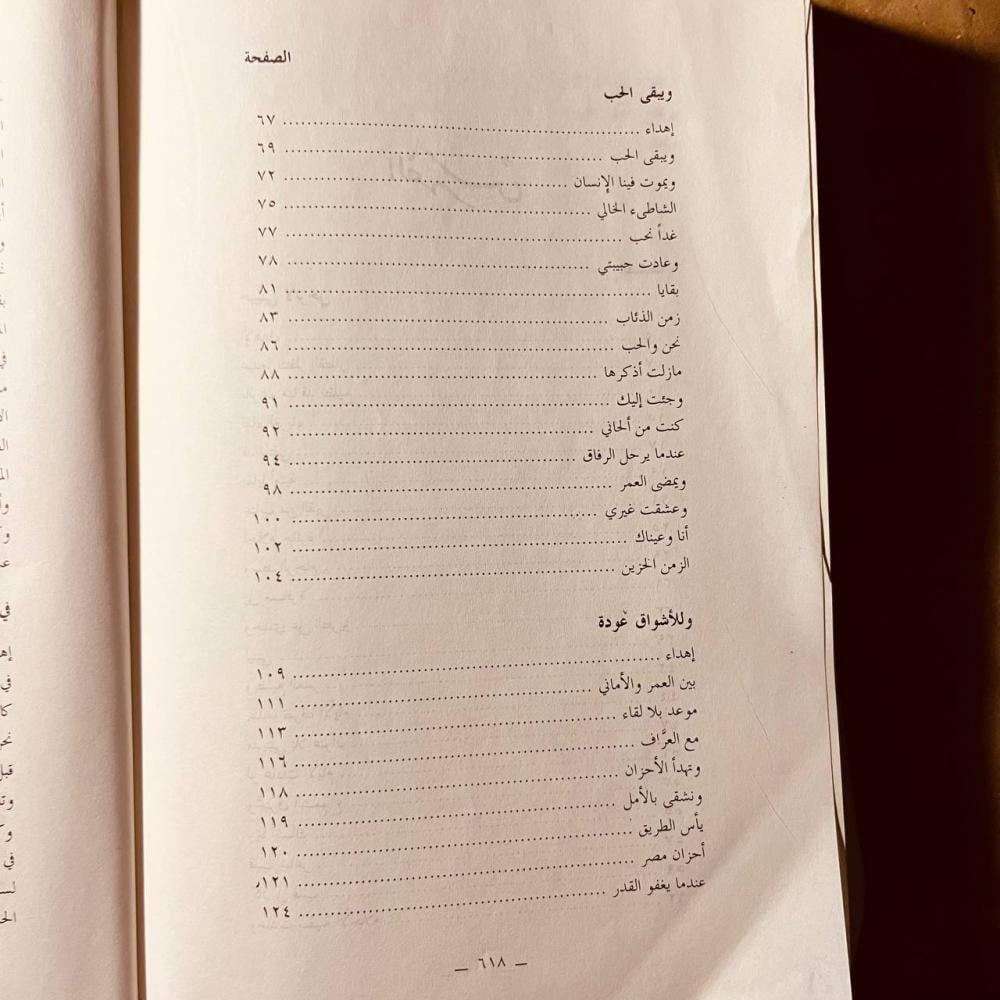 الصفحة
ويبقى الحب
إهداء ........ ٦٧
ويبقى الحب ........ ٦٩
ويموت فينا الإنسان ........ ٧٢
الشاطىء الخالي ........ ٧٥
غداً نحب ........ ٧٧
وعادت حبيبتي ........ ٧٨
بقايا ........ ٨١
زمن الذئاب ........ ٨٣
نحن والحب ........ ٨٦
مازلت أذكرها ........ ٨٨
وجئت إليك ........ ٩١
كنت من ألحاني ........ ٩٢
عندما يرحل الرفاق ........ ٩٤
ويمضى العمر ........ ٩٨
وعشقت غيري ........ ١٠٠
أنا وعيناك ........ ١٠٢
الزمن الحزين ........ ١٠٤
وللأشواق عودة
إهداء ........ ١٠٩
بين العمر والأماني ........ ١١١
موعد بلا لقاء ........ ١١٣
مع العرَّاف ........ ١١٦
وتهدأ الأحزان ........ ١١٨
ونشقى بالأمل ........ ١١٩
يأس الطريق ........ ١٢٠
أحزان مصر ........ ١٢١
عندما يغفو القدر ........ ١٢٤
— ٦١٨ —